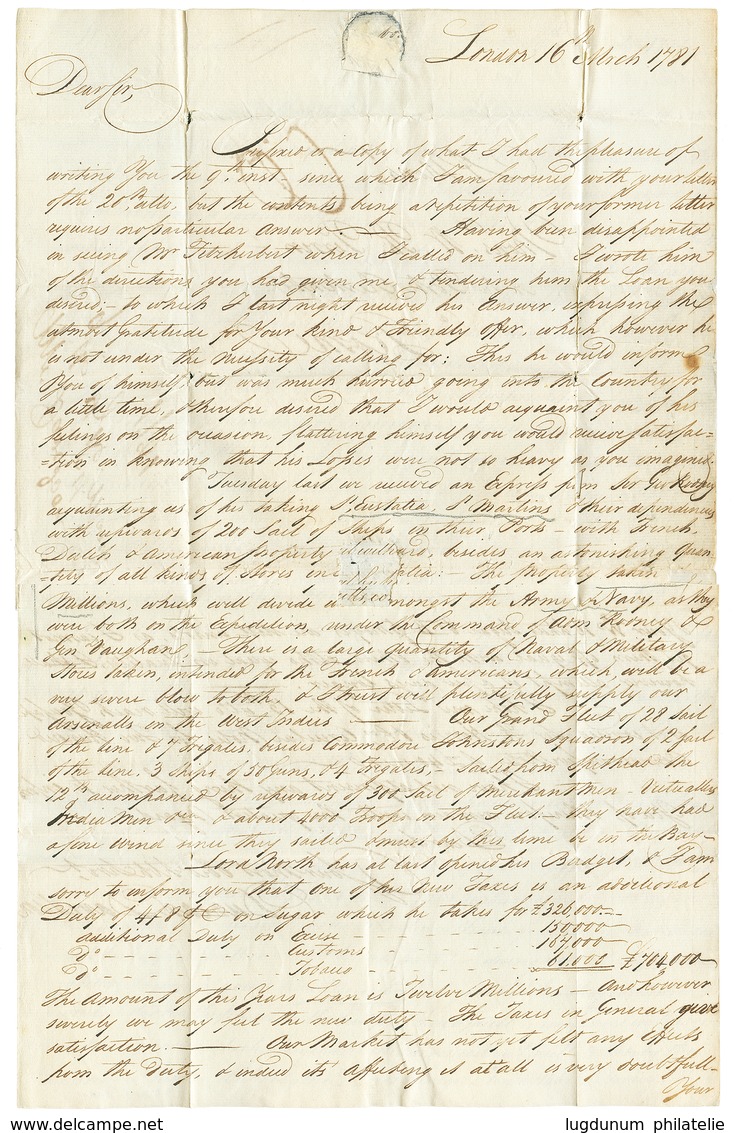 London 16th March 1781
Dear Sir,
Prefixed is a copy of what I had the pleasure of
writing You the 9th inst. since which I am favoured with your letter
of the 20th ulto, but the contents being a repetition of your former letter
requires no particular answer. — Having been disappointed
in seeing Mr Fitzherbert when I called on him — I wrote him
of the directions you had given me, & tendering him the Loan you
desired; — to which I last night received his Answer, expressing the
utmost Gratitude for Your kind & Friendly offer, which however he
is not under the necessity of calling for; This he would inform
You of himself but was much hurried going into the Country for
a little time, & therefore desired that I would acquaint you of his
feelings on the occasion, flattering himself you would receive satisfac=
=tion in knowing that his Losses were not so heavy as you imagined.
Tuesday last we received an Express from Sir Geo Rodney
acquainting us of his taking St Eustatia St Martins & their dependencies
with upwards of 200 Sail of Ships in their Ports — with French,
Dutch & American property besides an astonishing Quan=
=tity of all kinds of Stores in — The property taken
Millions, which will divide amongst the Army & Navy, as they
were both on the Expedition, under the Command of Adm Rodney &
Gen Vaughan — There is a large quantity of Naval & Military
Stores taken, intended for the French & Americans, which will be a
very severe blow to both, & I trust will plentifully supply our
Arsenalls in the West Indies — Our Grand Fleet of 28 Sail
of the Line & 7 Frigates, besides Commodore Johnstons Squadron of 2 Sail
of the Line, 3 Ships of 50 Guns, & 4 Frigates, — Sailed from Spithead the
12th accompanied by upwards of 300 Sail of Merchant Men — Victuallers
India Men &ca & about 4000 Troops in the Fleet — they have had
a fine wind since they sailed & must by this time be in the Bay —
Lord North has at last opened his Budget, & I am
sorry to inform you that one of his New Taxes is an additional
Duty of 4/8 on Sugar which he takes for £326,000 —
additional Duty on Excise — 150,000
Do — Customs 167,000
Do — Tobacco — 61,000 £704,000
The Amount of this Years Loan is Twelve Millions — And however
severely we may feel the new duty — The Taxes in General give
satisfaction. — Our Market has not yet felt any Effects
from the Duty, & indeed its affecting it at all is very doubtfull —
Your
lugdunum philatelie